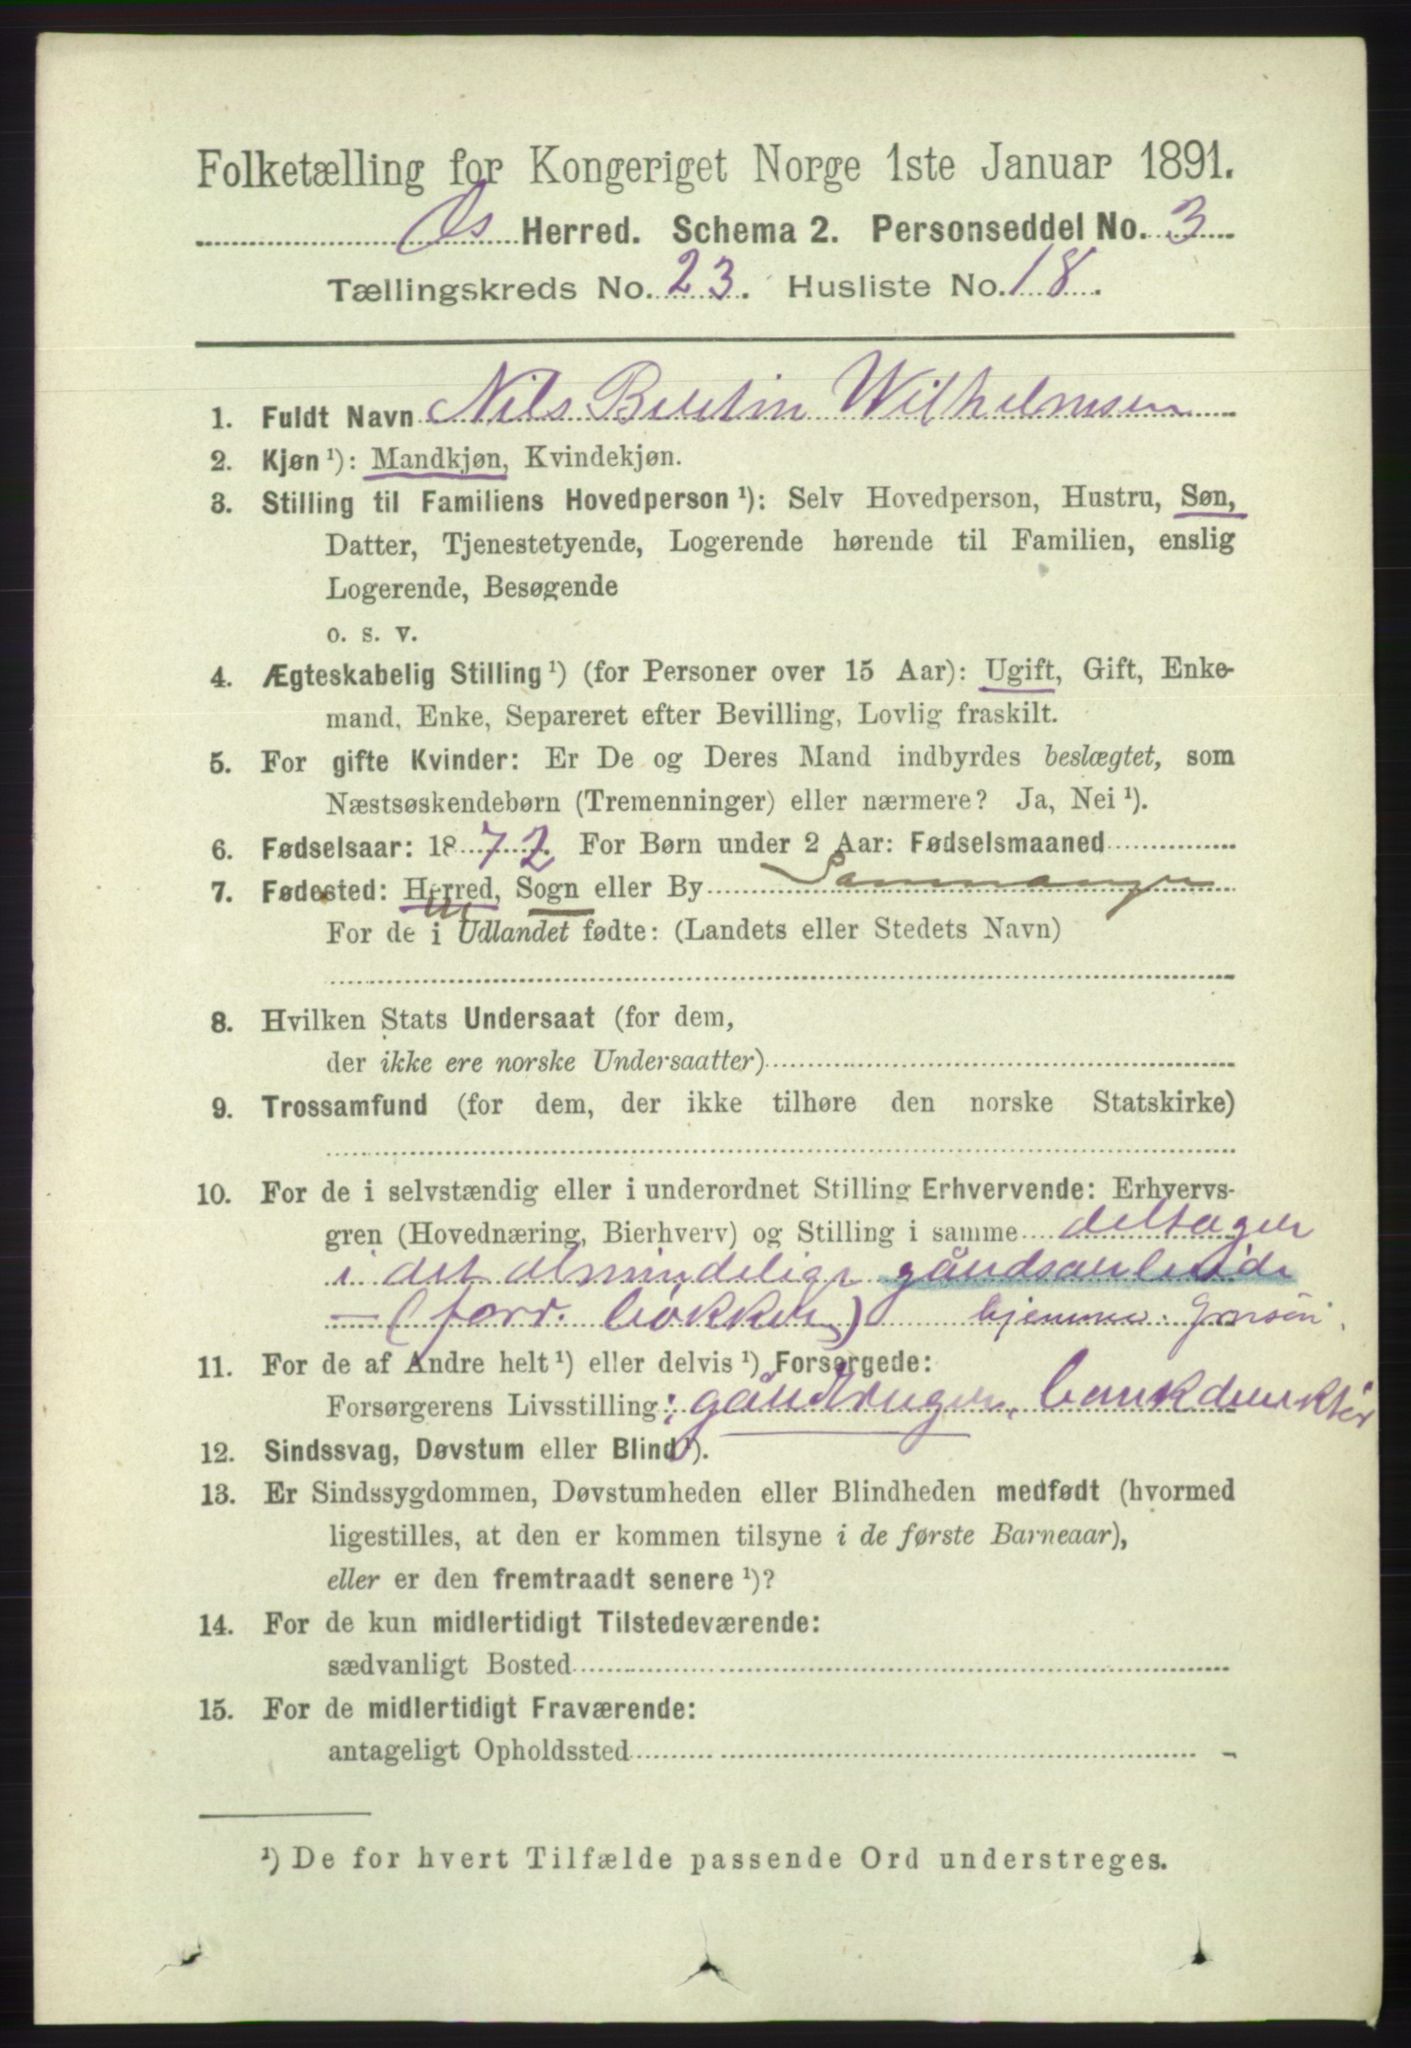 Folketælling for Kongeriget Norge 1ste Januar 1891.
Os Herred. Schema 2. Personseddel No. 3
Tællingskreds No. 23. Husliste No. 18.
1. Fuldt Navn Nils Wilhelmsen
2. Kjøn ¹): Mandkjøn, Kvindekjøn.
3. Stilling til Familiens Hovedperson ¹): Selv Hovedperson, Hustru, Søn,
Datter, Tjenestetyende, Logerende hørende til Familien, enslig
Logerende, Besøgende
o. s. v.
4. Ægteskabelig Stilling ¹) (for Personer over 15 Aar): Ugift, Gift, Enke-
mand, Enke, Separeret efter Bevilling, Lovlig fraskilt.
5. For gifte Kvinder: Er De og Deres Mand indbyrdes beslægtet, som
Næstsøskendebørn (Tremenninger) eller nærmere? Ja, Nei ¹).
6. Fødselsaar: 1872. For Børn under 2 Aar: Fødselsmaaned
7. Fødested: Herred, Sogn eller By Sammanger
For de i Udlandet fødte: (Landets eller Stedets Navn)
8. Hvilken Stats Undersaat (for dem,
der ikke ere norske Undersaatter)
9. Trossamfund (for dem, der ikke tilhøre den norske Statskirke)
10. For de i selvstændig eller i underordnet Stilling Erhvervende: Erhvervs-
gren (Hovednæring, Bierhverv) og Stilling i samme deltager
i det almindelige gåudsarbeide
— (forr. bökker) hjemme.
11. For de af Andre helt ¹) eller delvis ¹) Forsørgede:
Forsørgerens Livsstilling:
12. Sindssvag, Døvstum eller Blind ¹).
13. Er Sindssygdommen, Døvstumheden eller Blindheden medfødt (hvormed
ligestilles, at den er kommen tilsyne i de første Barneaar),
eller er den fremtraadt senere ¹)?
14. For de kun midlertidigt Tilstedeværende:
sædvanligt Bosted
15. For de midlertidigt Fraværende:
antageligt Opholdssted
¹) De for hvert Tilfælde passende Ord understreges.